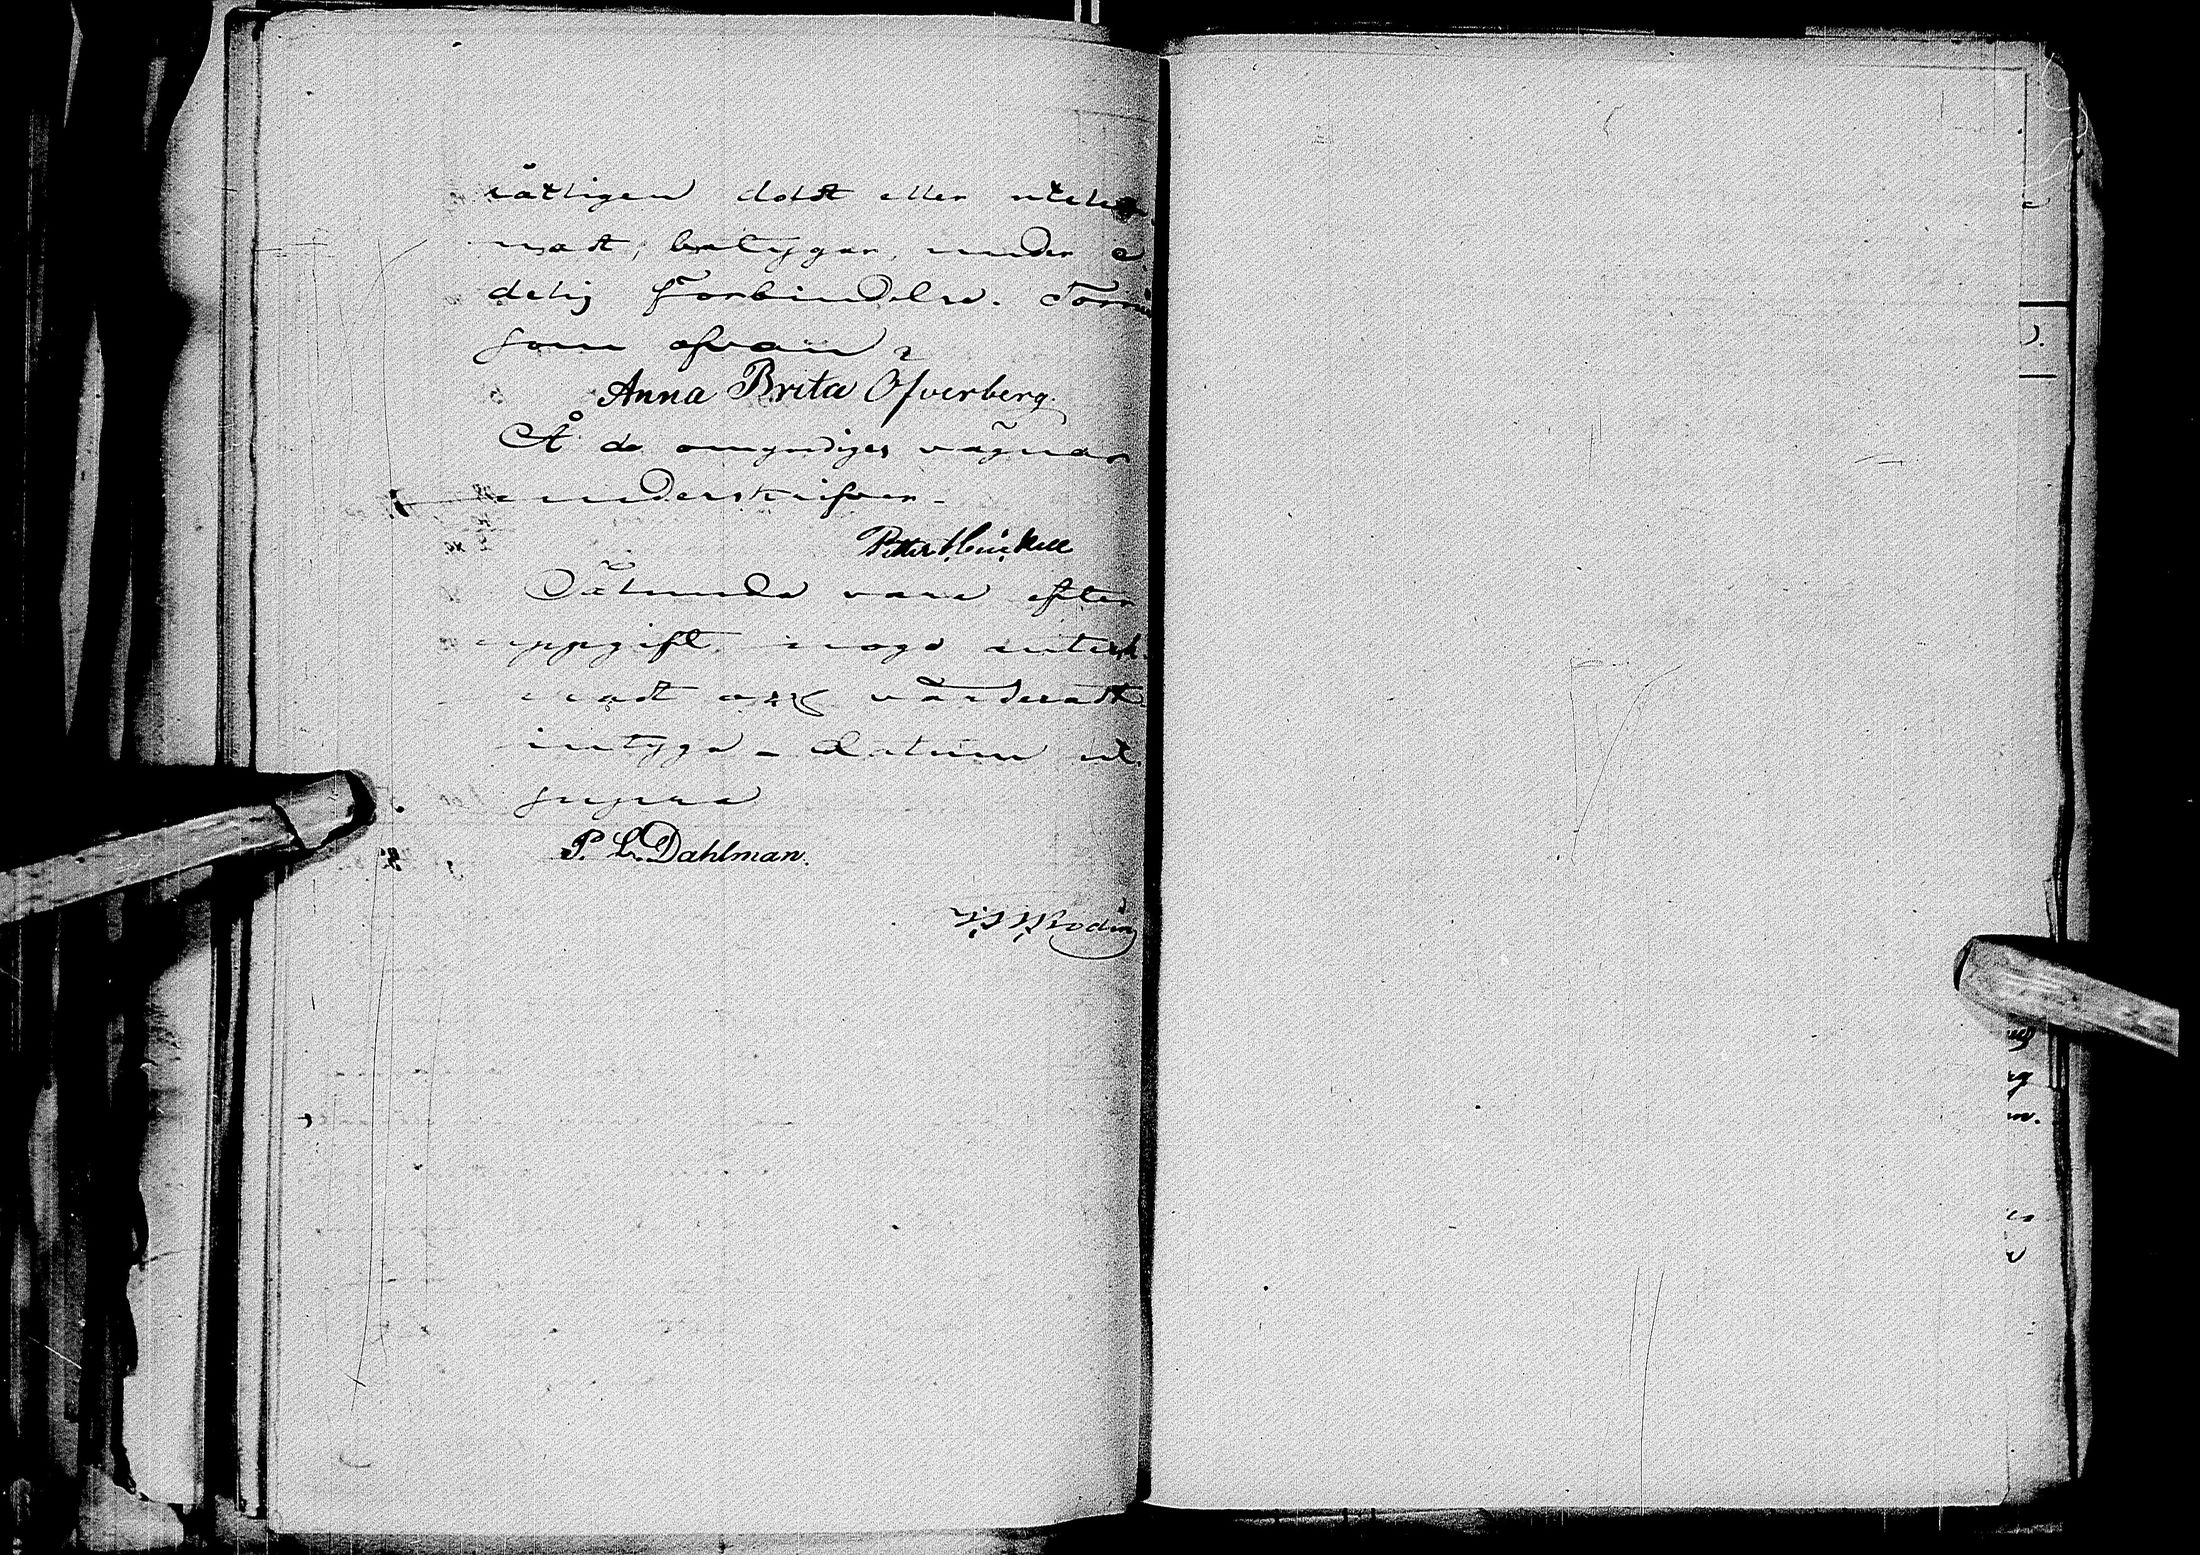 såttligen doldt eller utelem-
nadt, betygar, under e-
delig Förbindelse.
som ofvan
Anna Brita Öfverberg.
Å de omyndiges vägnar
underskrifver_
Petter
Sålunda vara efter
uppgift noga anteck-
nadt och värderadt
intyga _ datum ut
supra
P. L. Dahlman.